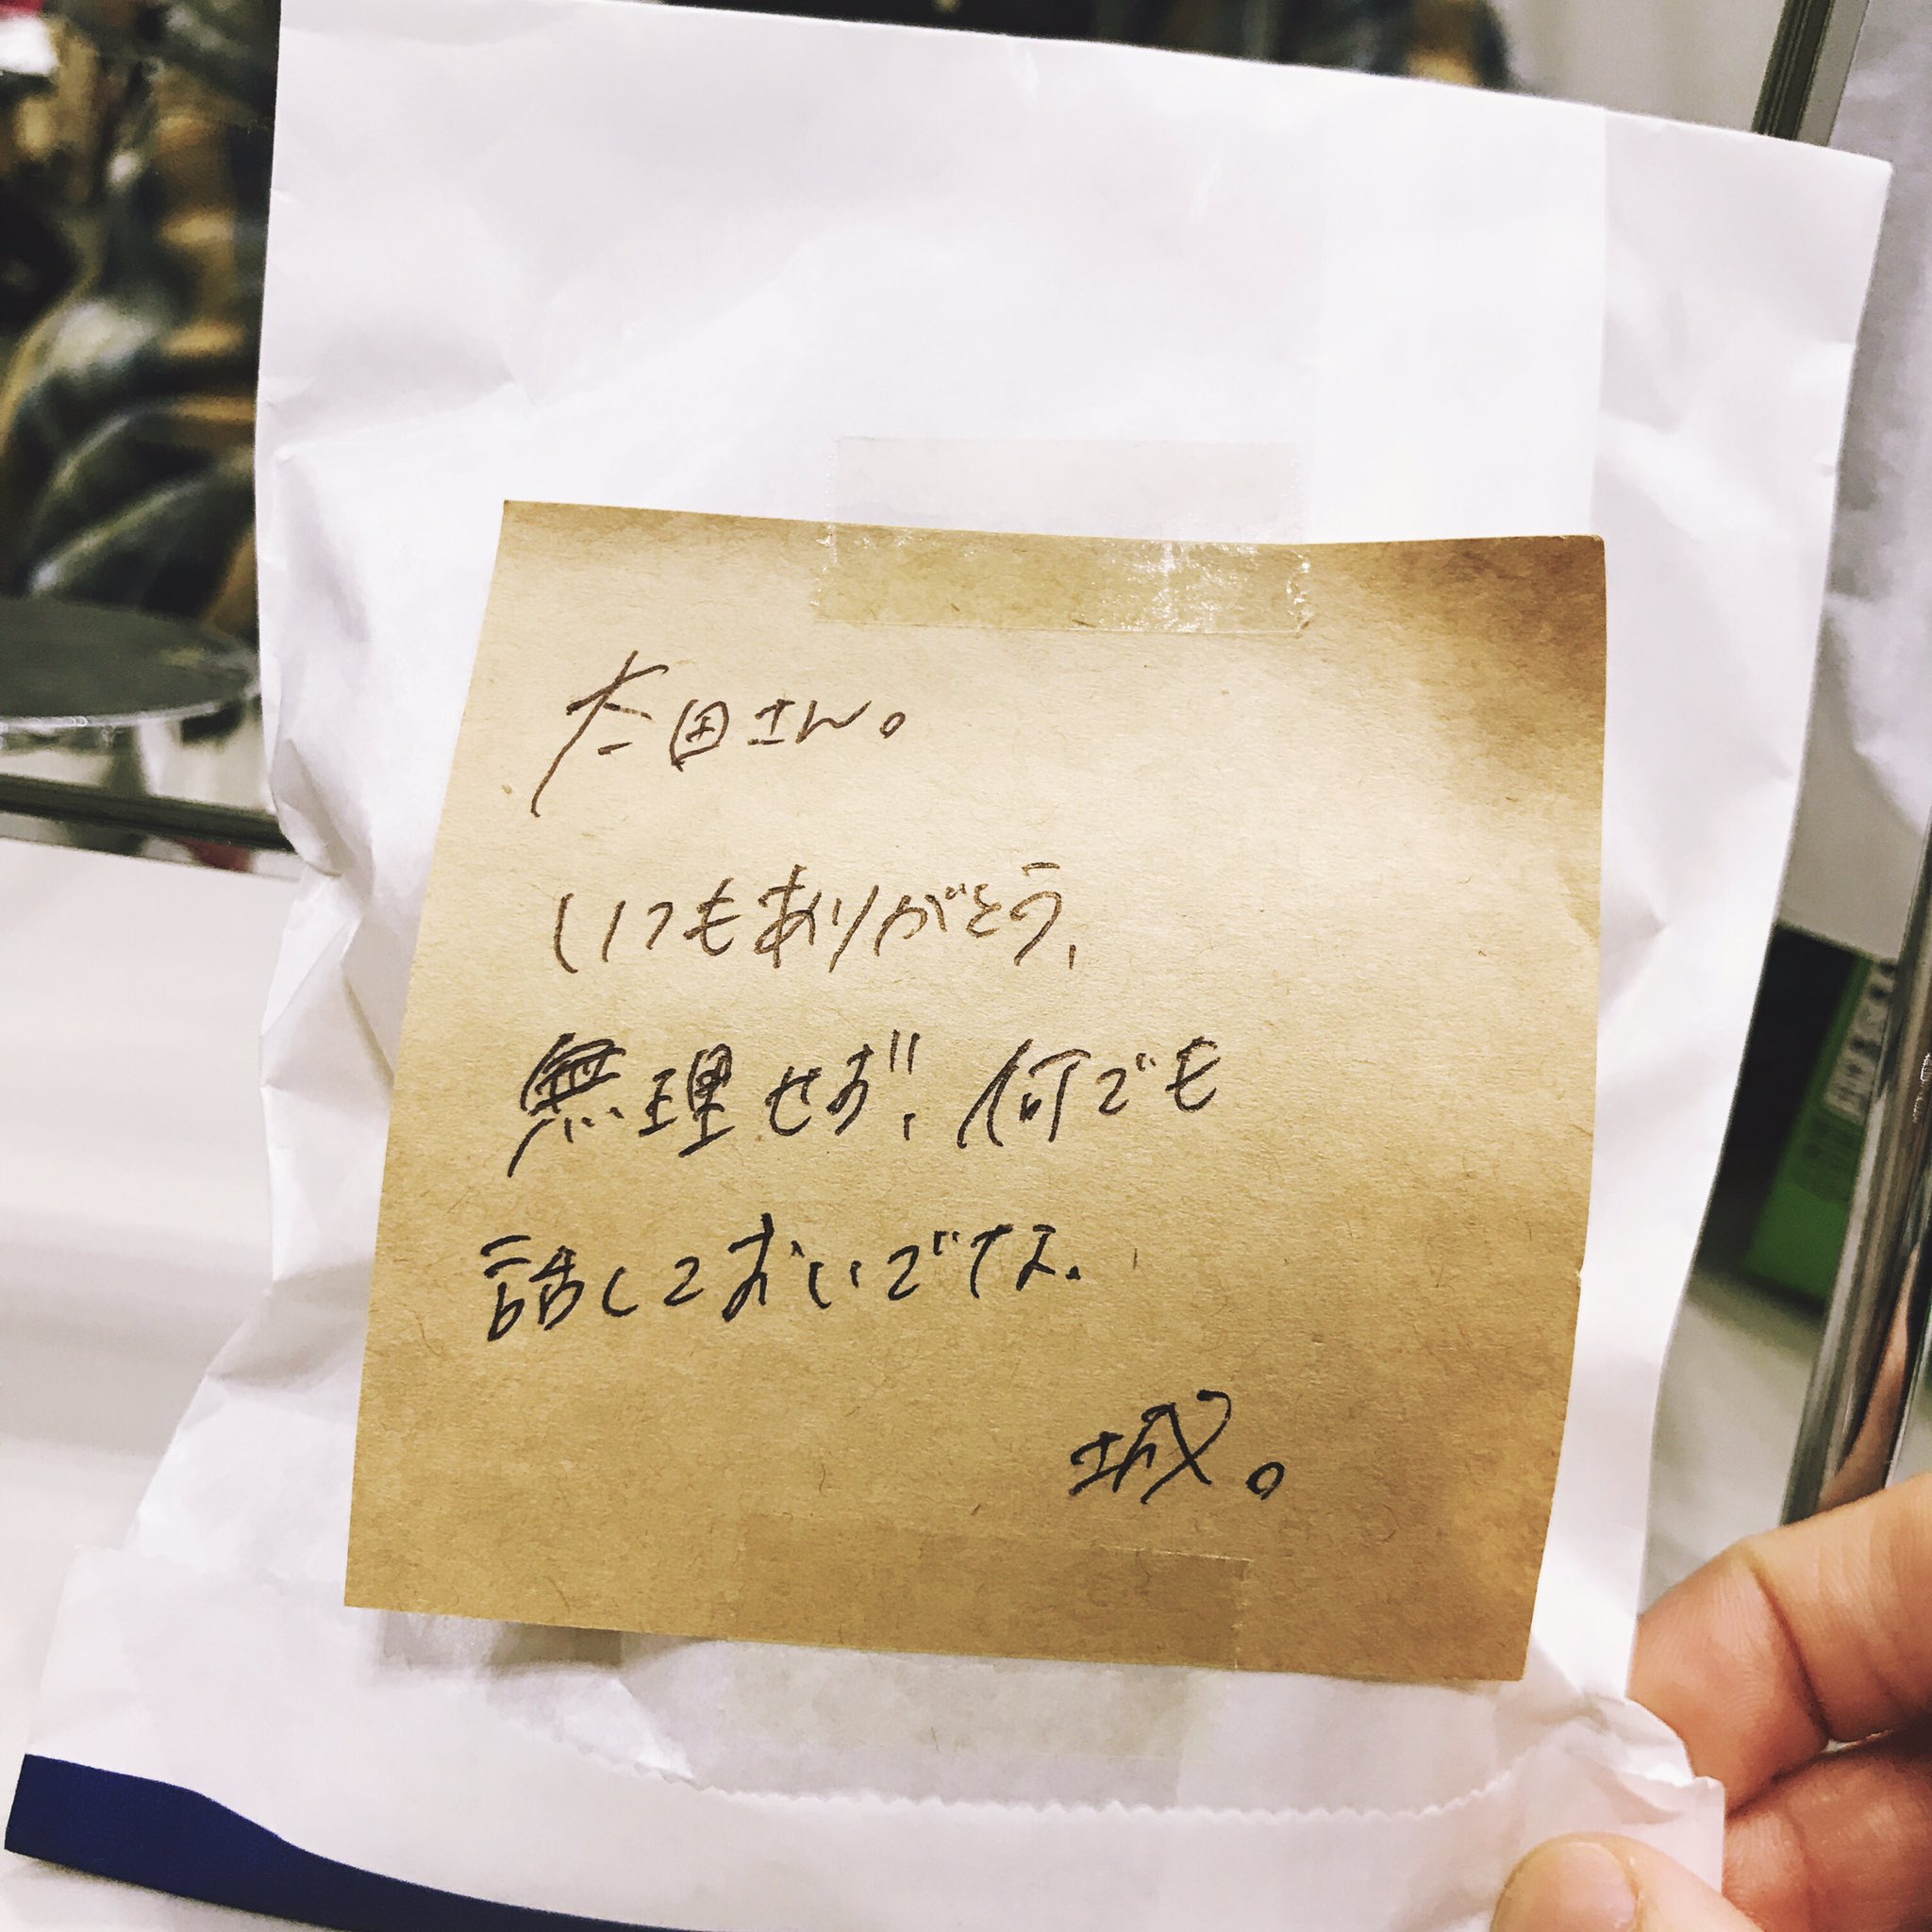 太田さん。
いつもありがとう、
無理せず、何でも
話しておいでな.
城。